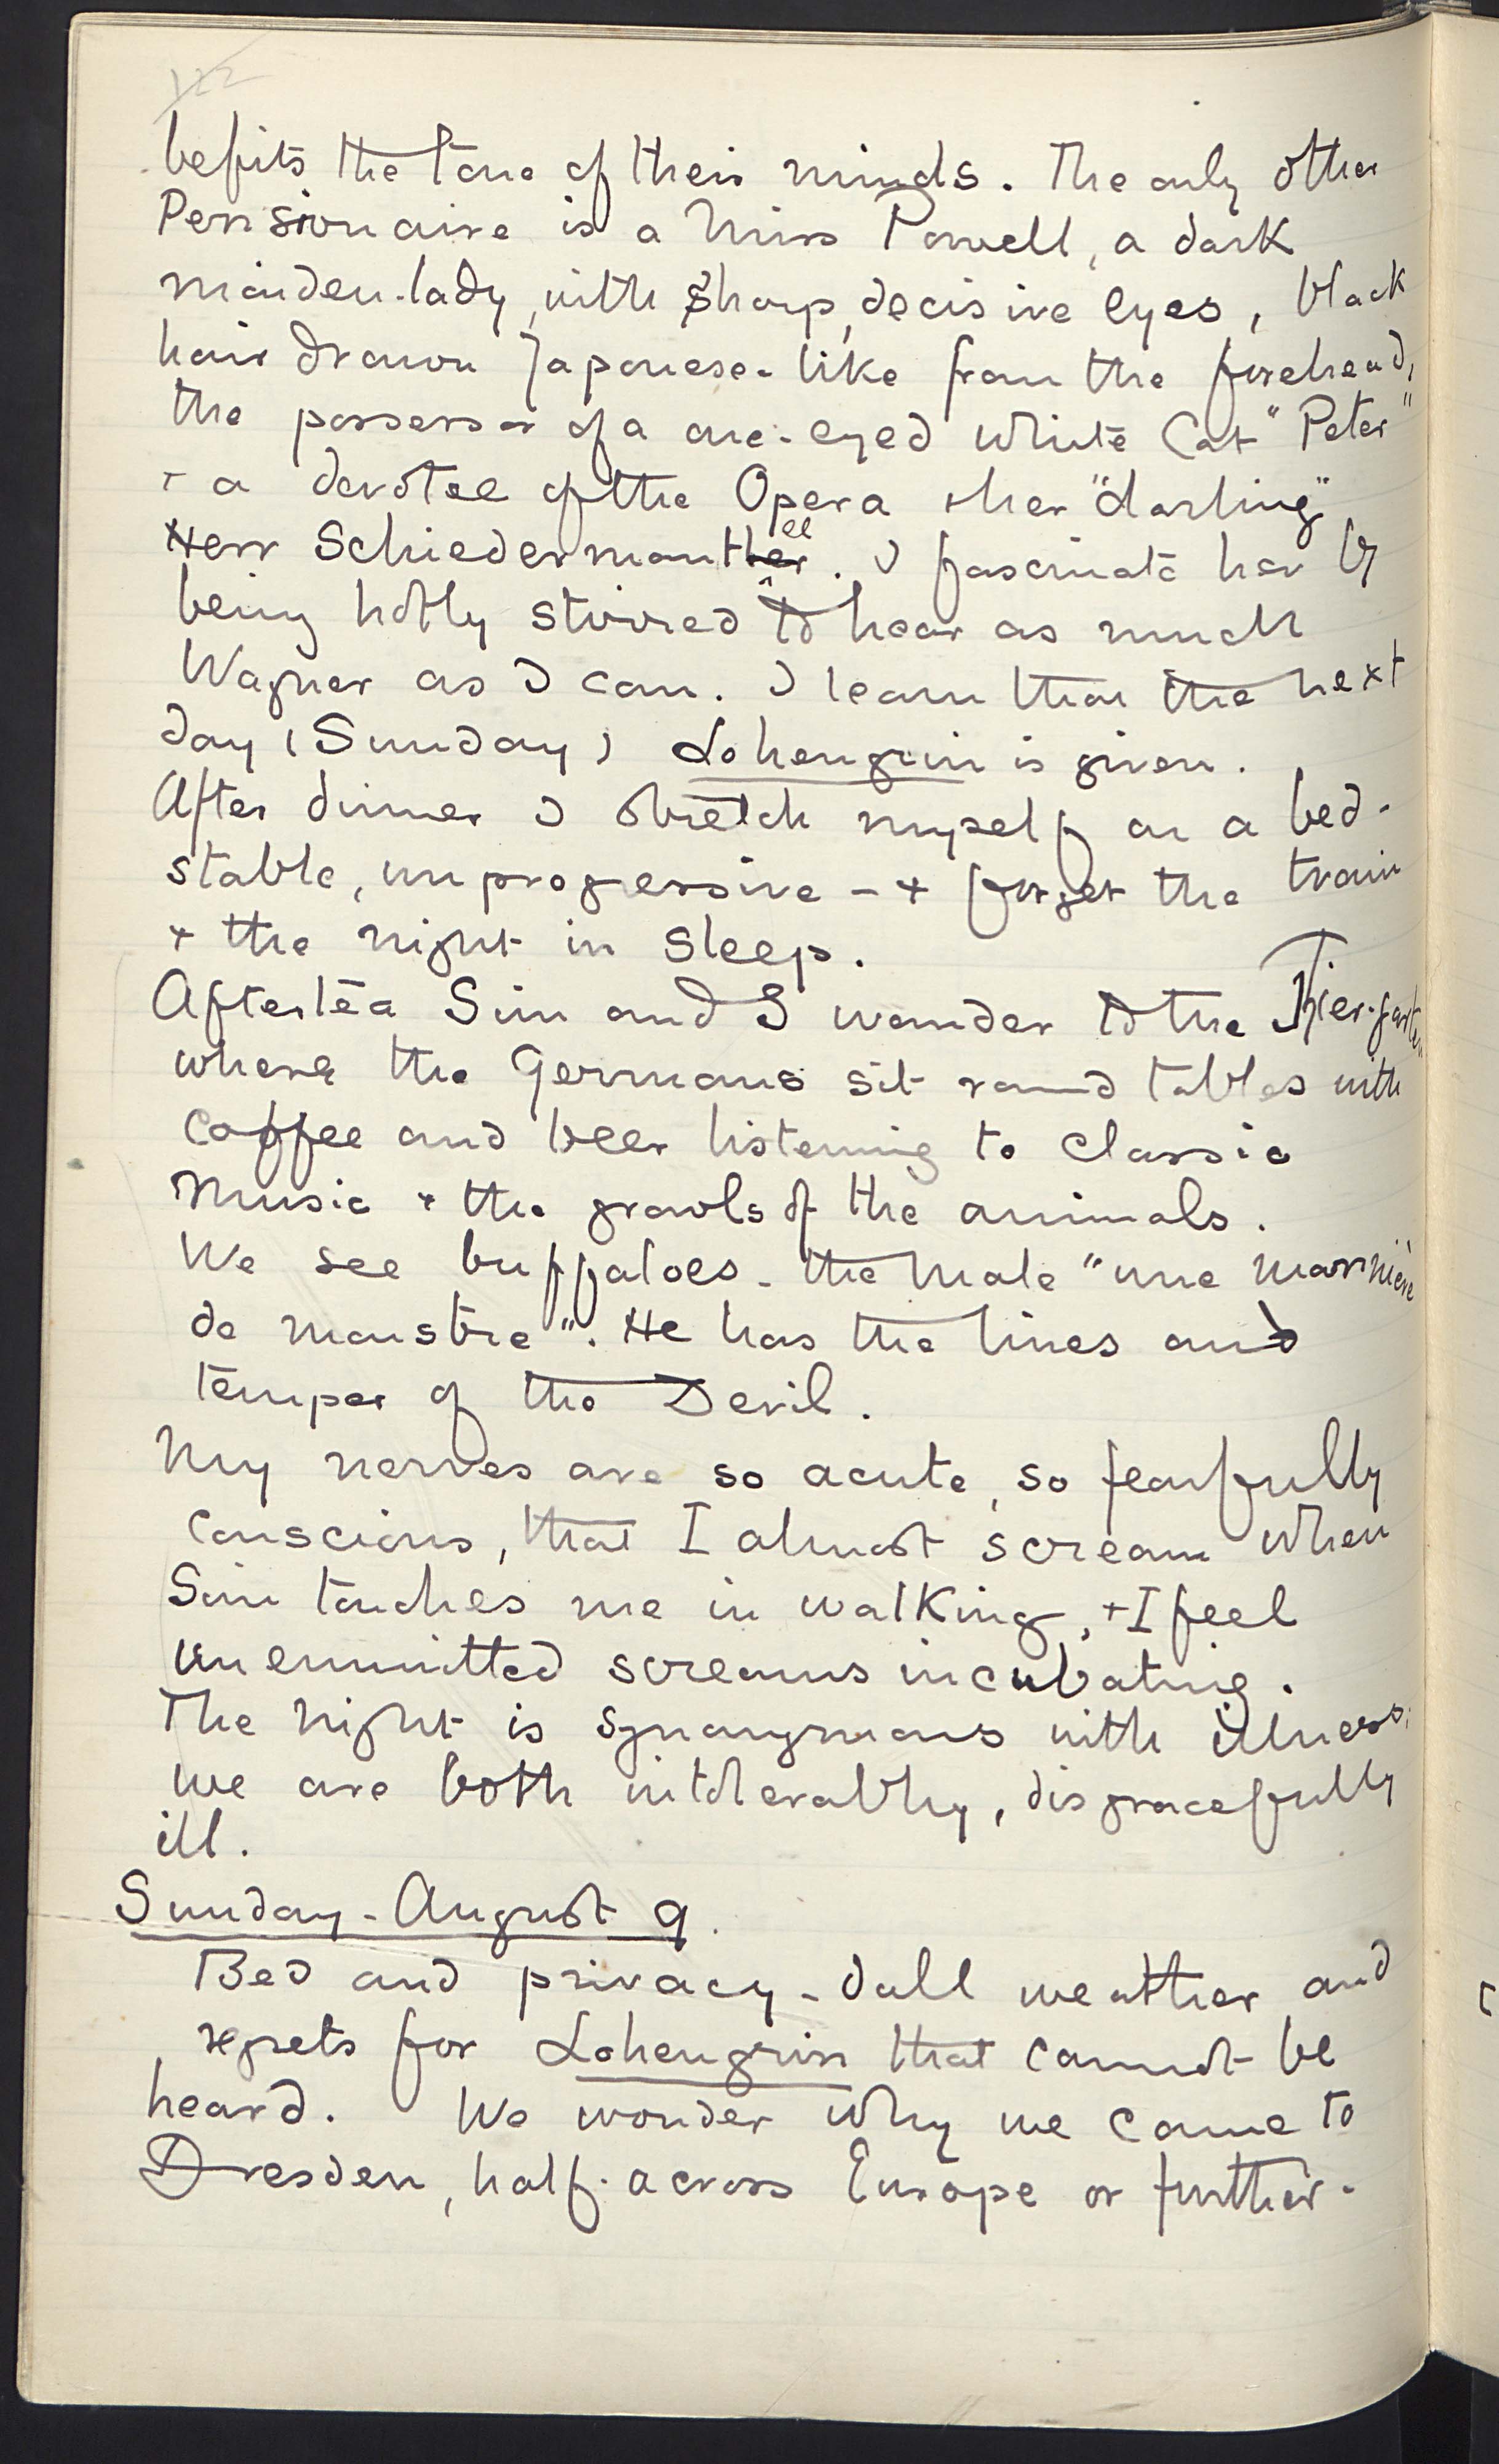 122
befits the tone of their minds. The only other
Pensionaire is a Miss Powell, a dark
maiden-lady, with sharp, decisive eyes, black
hair drawn Japanese-like from the forehead,
the possessor of a one-eyed white Cat "Peter"
+ a devotee of the Opera + her "darling"
Herr Schiedermantell. I fascinate her by
being hotly stirred to hear as much
Wagner as I can. I learn that the next
day (Sunday) Lohengrin is given.
After dinner I stretch myself on a bed -
stable, unprogressive - + forget the train
+ the night in sleep.
After tea Sim and I wander to the Thier-garten
where the Germans sit round tables with
coffee and beer listening to classic
music + the growls of the animals.
We see buffaloes - the male "une manière
de monstre". He has the lines and
temper of the Devil.
My nerves are so acute, so fearfully
conscious, that I almost scream when
Sim touches me in walking, + I feel
unemmitted screams incubating.
The night is synonymous with illness;
we are both intolerably, disgracefully
ill.
Sunday - August 9.
Bed and privacy - dull weather and
regrets for Lohengrin that cannot be
heard. We wonder why we came to
Dresden, half-across Europe or further.